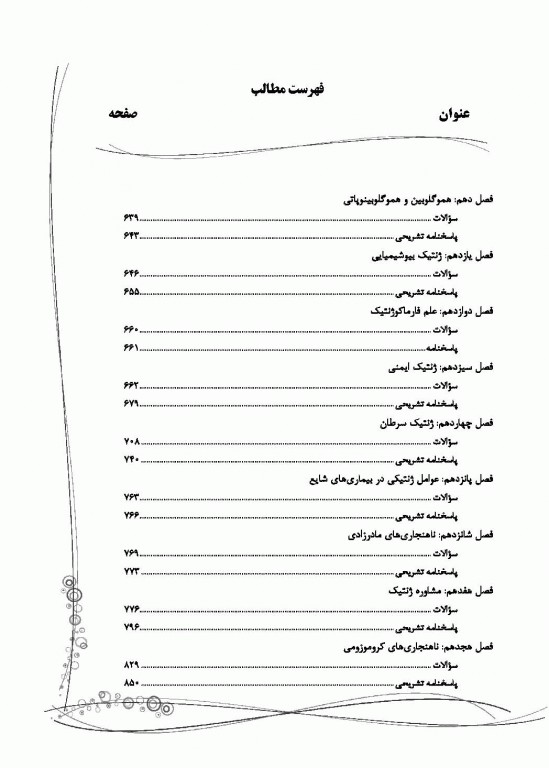 فهرست مطالب
عنوان صفحه
فصل دهم: هموگلوبین و هموگلوبینوپاتی
سؤالات ........ ۶۳۹
پاسخنامه تشریحی ........ ۶۴۳
فصل یازدهم: ژنتیک بیوشیمیایی
سؤالات ........ ۶۴۶
پاسخنامه تشریحی ........ ۶۵۵
فصل دوازدهم: علم فارماکوژنتیک
سؤالات ........ ۶۶۰
پاسخنامه ........ ۶۶۱
فصل سیزدهم: ژنتیک ایمنی
سؤالات ........ ۶۶۲
پاسخنامه تشریحی ........ ۶۷۹
فصل چهاردهم: ژنتیک سرطان
سؤالات ........ ۷۰۸
پاسخنامه تشریحی ........ ۷۴۰
فصل پانزدهم: عوامل ژنتیکی در بیماری‌های شایع
سؤالات ........ ۷۶۳
پاسخنامه تشریحی ........ ۷۶۶
فصل شانزدهم: ناهنجاری‌های مادرزادی
سؤالات ........ ۷۶۹
پاسخنامه تشریحی ........ ۷۷۳
فصل هفدهم: مشاوره ژنتیک
سؤالات ........ ۷۷۶
پاسخنامه تشریحی ........ ۷۹۶
فصل هجدهم: ناهنجاری‌های کروموزومی
سؤالات ........ ۸۲۹
پاسخنامه تشریحی ........ ۸۵۰